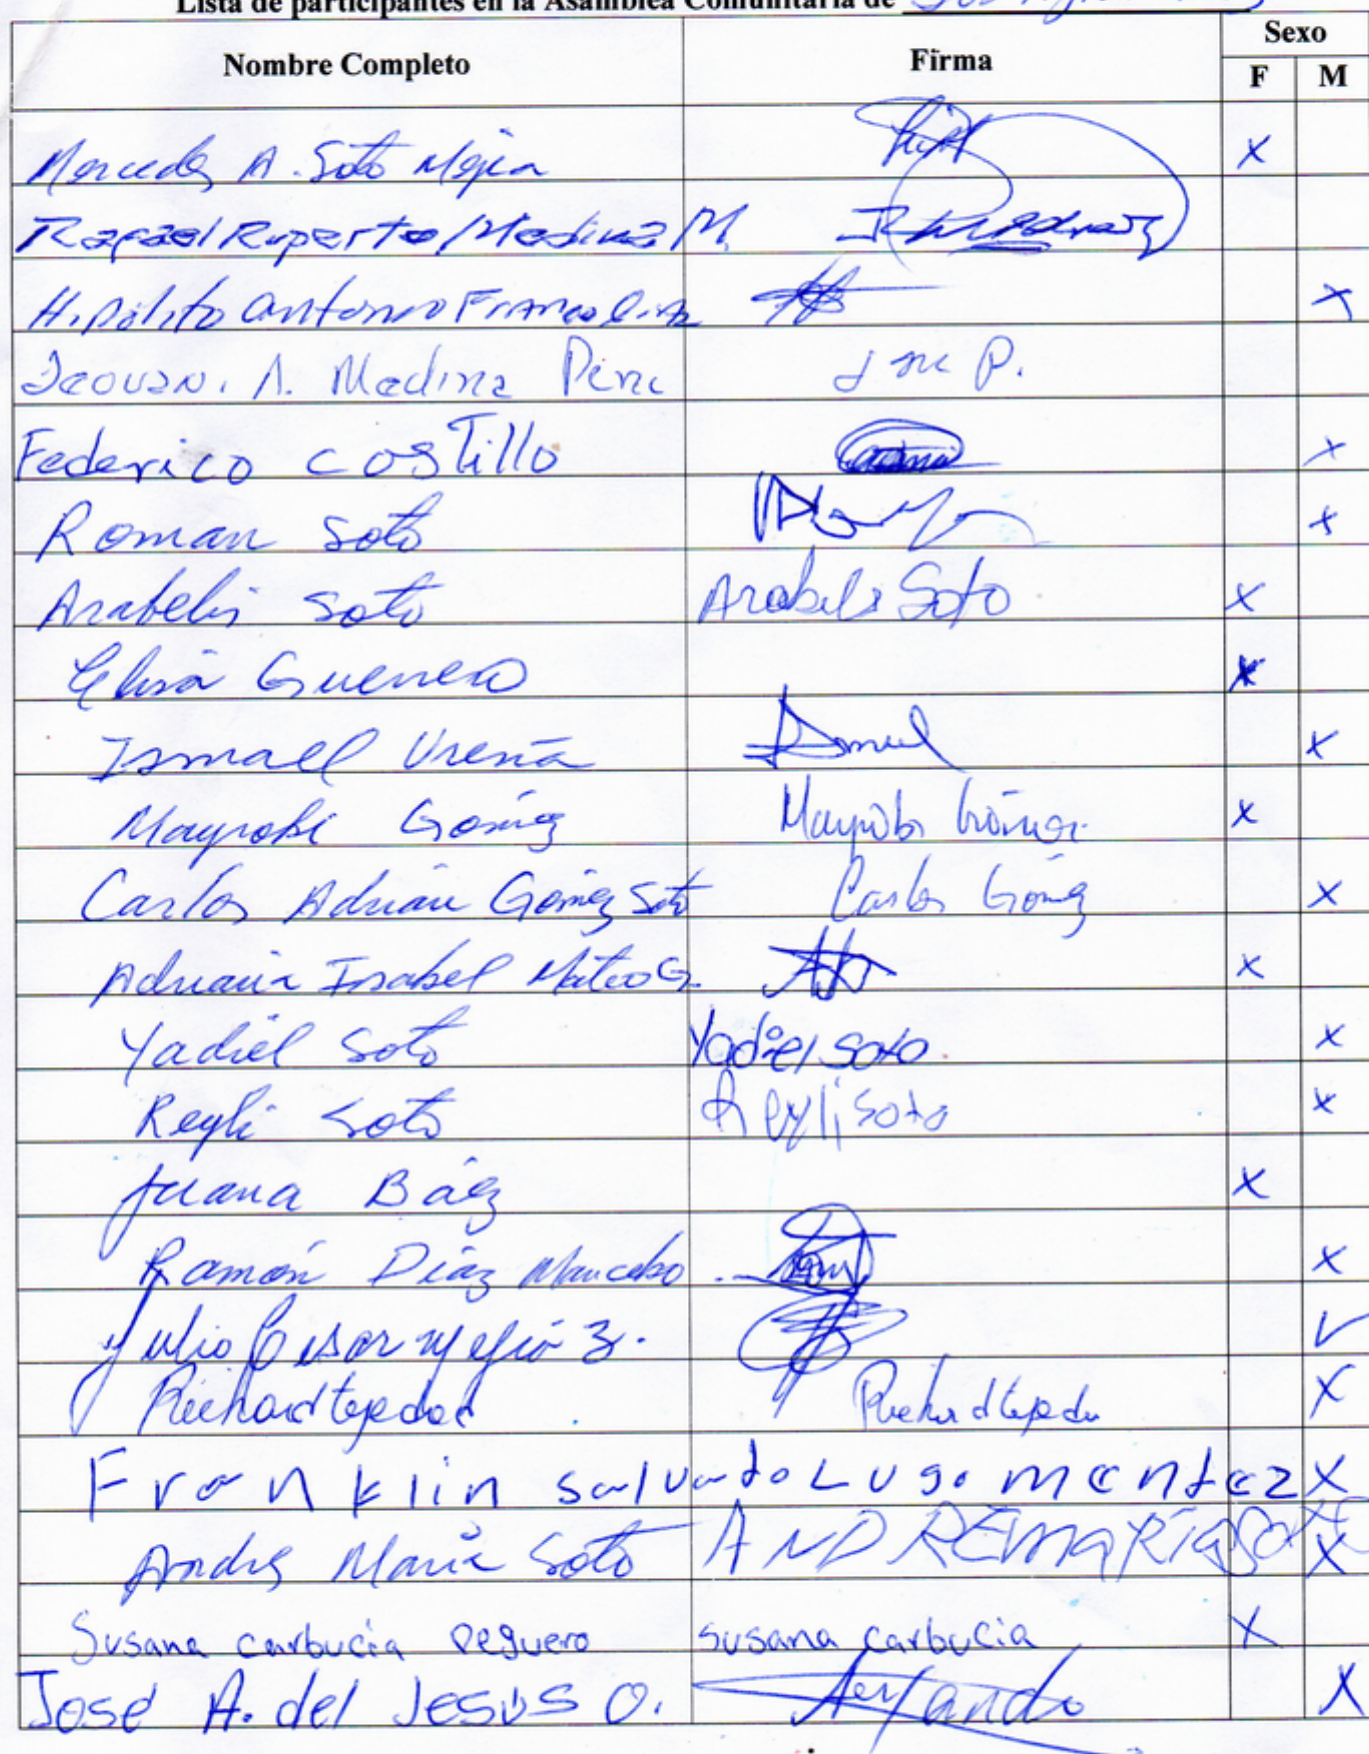 Lista de participantes en la Asamblea Comunitaria de
Sexo
Nombre Completo Firma
F M
Mercedes A. Soto Mejia X
Rafael Ruperto Medina M.
Hipolito Antonio Franco X
A. Medina J M P.
Federico Costillo X
Roman Soto X
Arabelis Soto Arabelis Soto X
Guerrero X
Ismael Ureña X
Mayrobi Gómez Mayrobi Gómez X
Carlos Adrian Gómez Soto Carlos Gómez X
Adriana Isabel Mateo G. X
Yadiel Soto Yadiel Soto X
Reyli Soto Reyli Soto X
Juana Báez X
Ramón Díaz Mancebo X
Julio Cesar Mejia 3. ✓
Richard tejeda X
Franklin Salvado Lugo mendez X
Andrs Maria Soto ANDRE MARIA X
Susana carbucia Peguero susana carbucia X
José A. del Jesus O. X